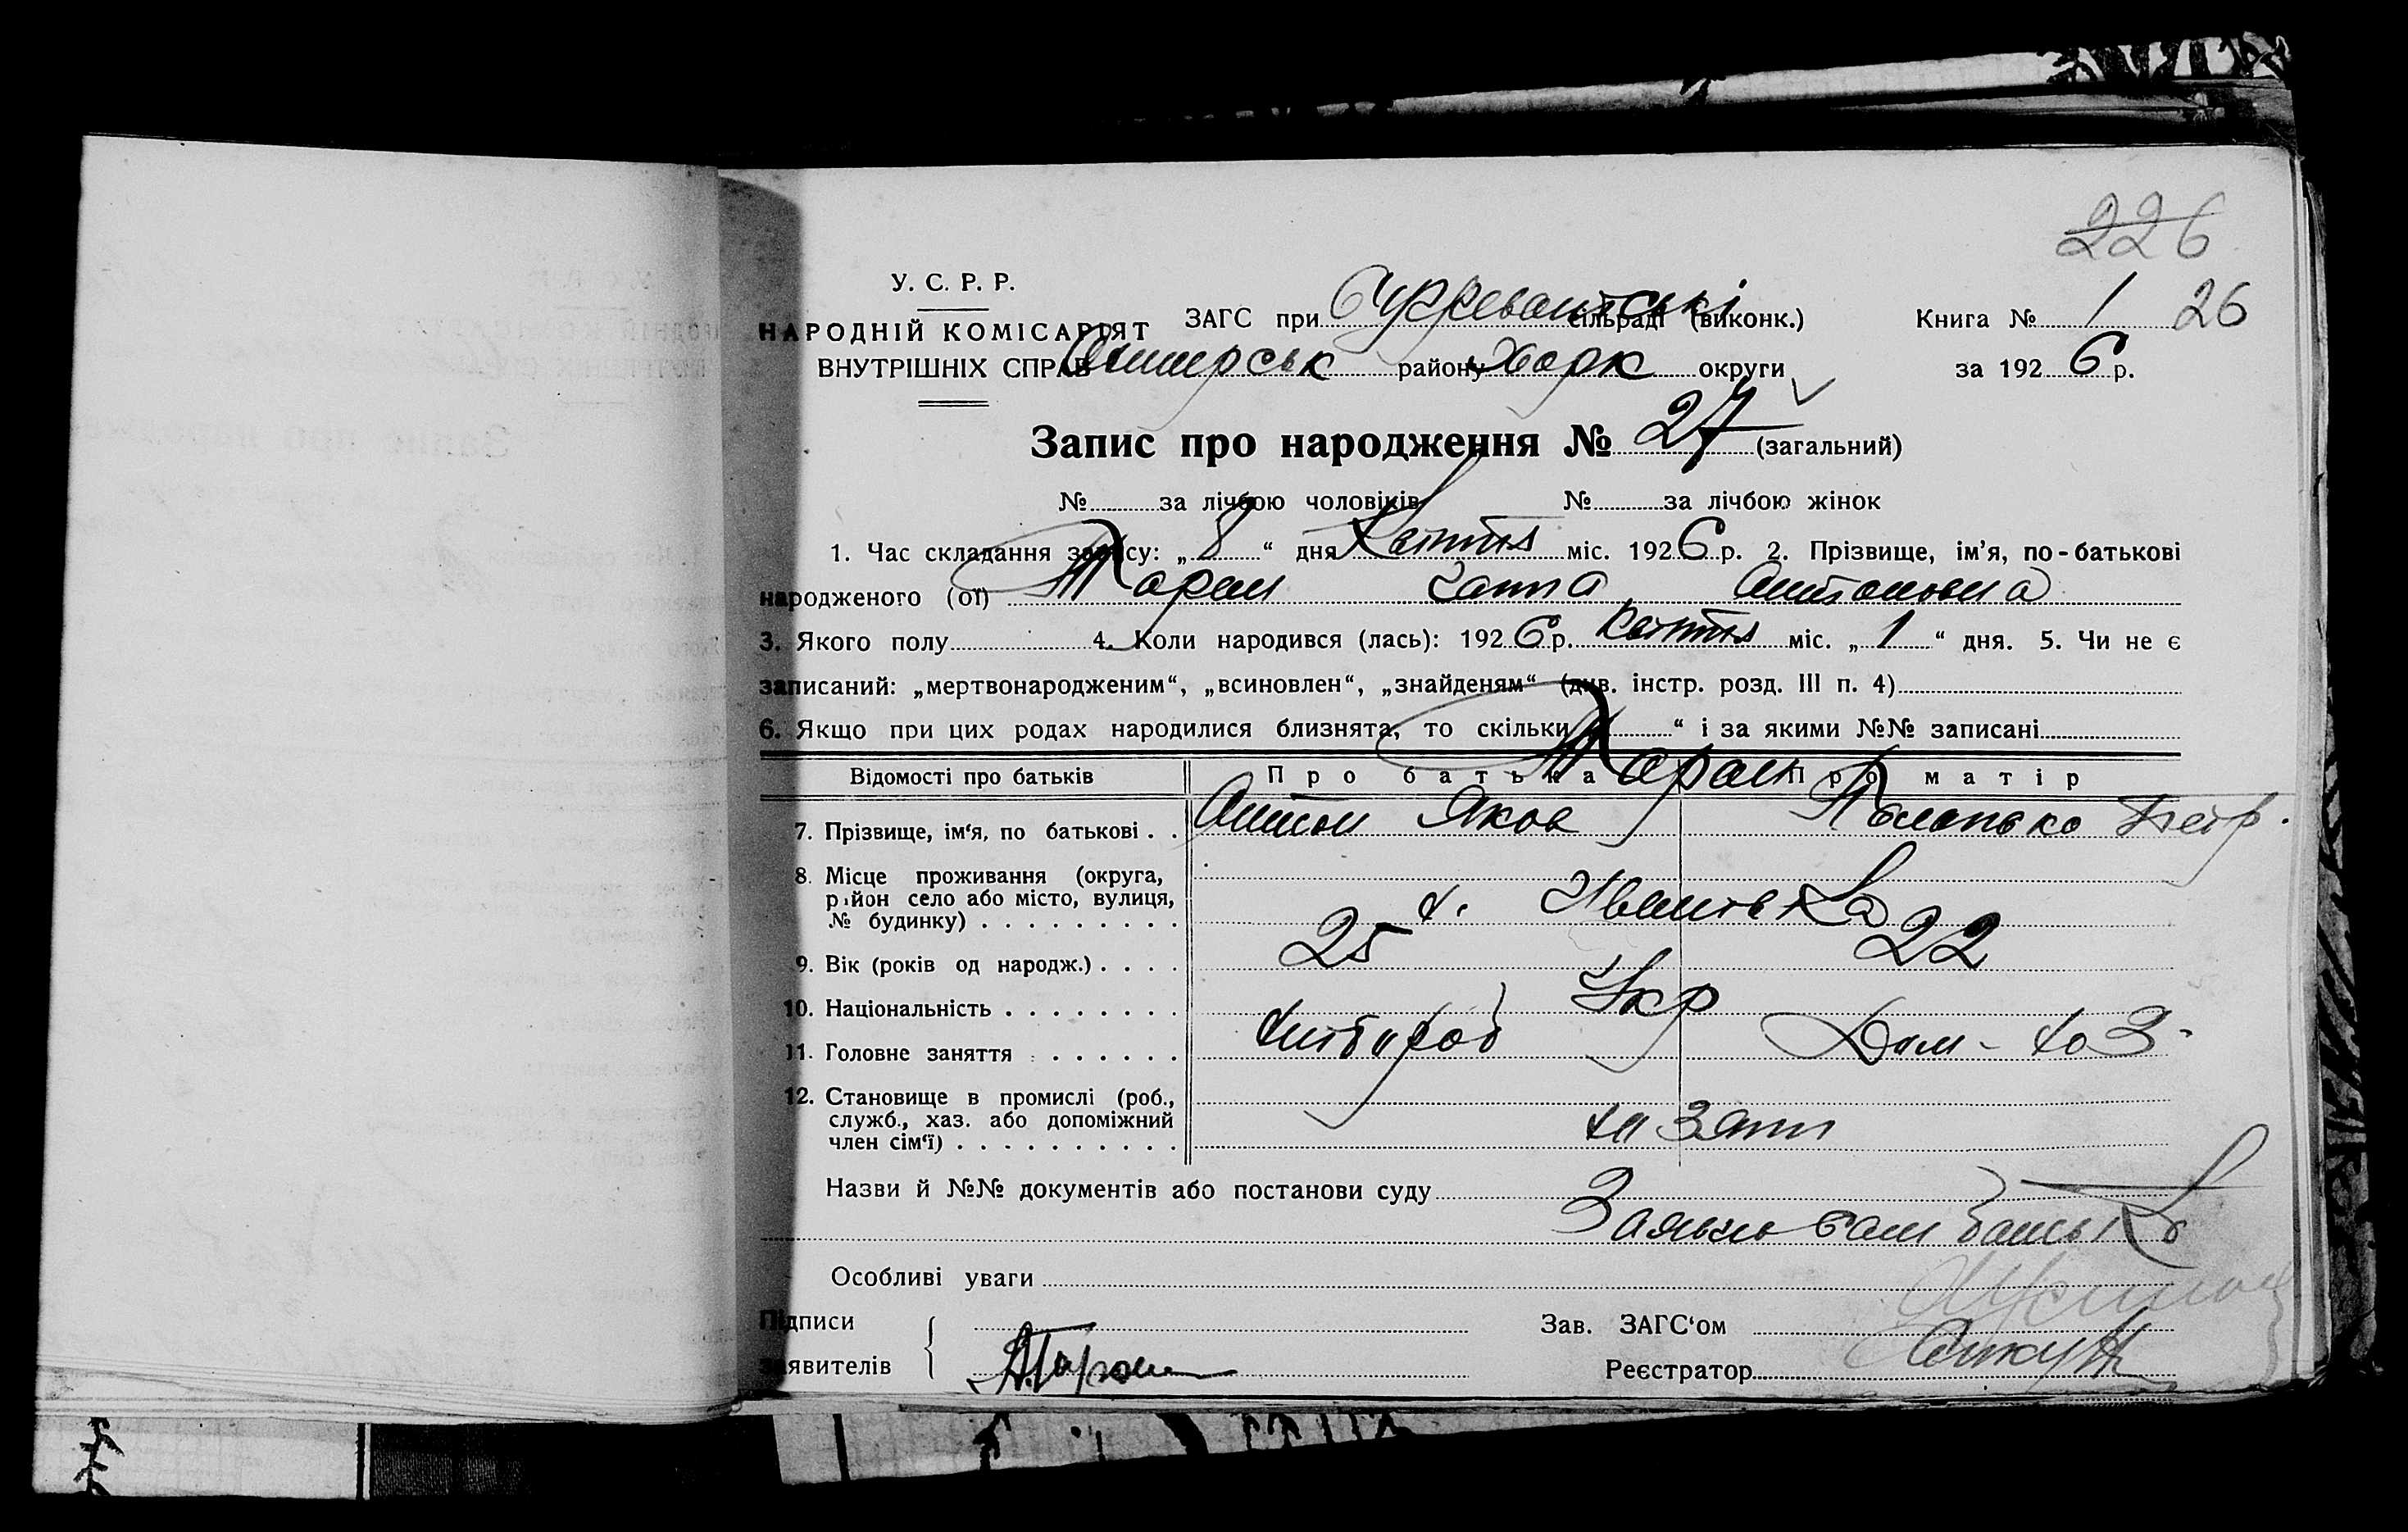 226
У. С. Р. Р.
НАРОДНІЙ КОМІСАРІЯТ
ВНУТРІШНІХ СПРАВ
ЗАГС при сільраді (виконк.)
району Харк округи
Книга № 1 26
за 1926 р.
Запис про народження № 27 (загальний)
№ за лічбою чоловіків № за лічбою жінок
1. Час складання запису: „ 8 “ дня Квітня міс. 1926 р. 2. Прізвище, ім’я, по-батькові
народженого (ої) Таран Ганна Антоновна
3. Якого полу 4. Коли народився (лась): 1926 р. Квітня міс. „ 1 “ дня. 5. Чи не є
записаний: „мертвонародженим“, „всиновлен“, „знайденям“ (див. інстр. розд. III п. 4)
6. Якщо при цих родах народилися близнята, то скільки “ і за якими №№ записані
Відомості про батьків Про батька Про матір
Таран
7. Прізвище, ім‘я, по батькові . . Антон Яков Петр.
8. Місце проживання (округа,
район село або місто, вулиця,
№ будинку) . . . . . . . . . х. Иванівка
9. Вік (років од народж.) . . . . 25 22
10. Національність . . . . . . . . Укр
11. Головне заняття . . . . . . . хлібороб Дом- хоз-
12. Становище в промислі (роб.,
служб., хаз. або допоміжний
член сім‘ї) . . . . . . . . . . хазяин
Назви й №№ документів або постанови суду
Особливі уваги
Підписи
заявителів А.Таран
Зав. ЗАГС‘ом
Реєстратор